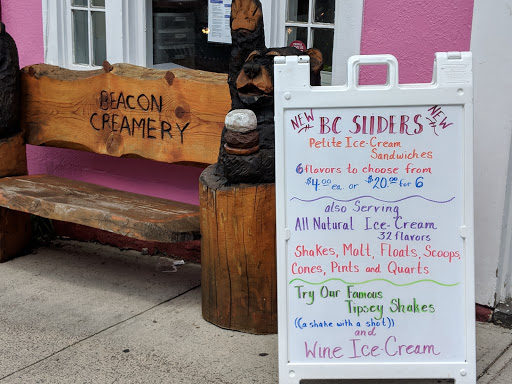 BEACON
CREAMERY
NEW BC SLIDERS NEW
Petite Ice-Cream
Sandwiches
6 flavors to choose from
$4.00 ea. or $20.00 for 6
also Serving
All Natural Ice-Cream
32 flavors
Shakes, Malt, Floats, Scoops,
Cones, Pints and Quarts
Try Our Famous
Tipsey Shakes
((a shake with a shot))
and
Wine Ice-Cream